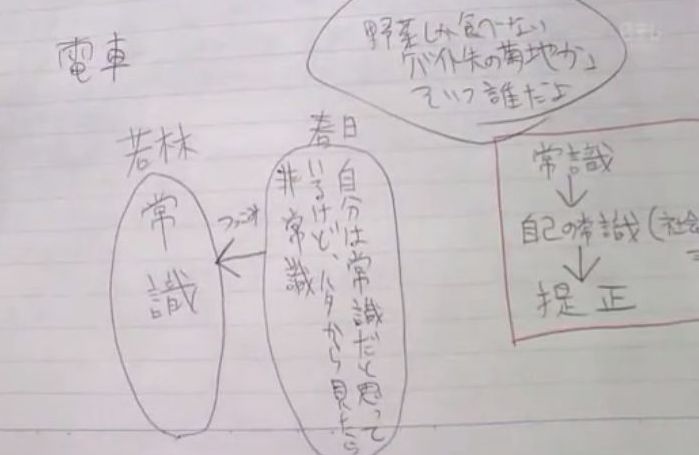 電車
野菜しか食べない
バイト先の菊地か」
そいつ誰だよ
若林
常識
春日
自分は常識だと思って
いるけど、ハタから見たら
非常識
常識
↓
自己の常識(社会
↓
提正